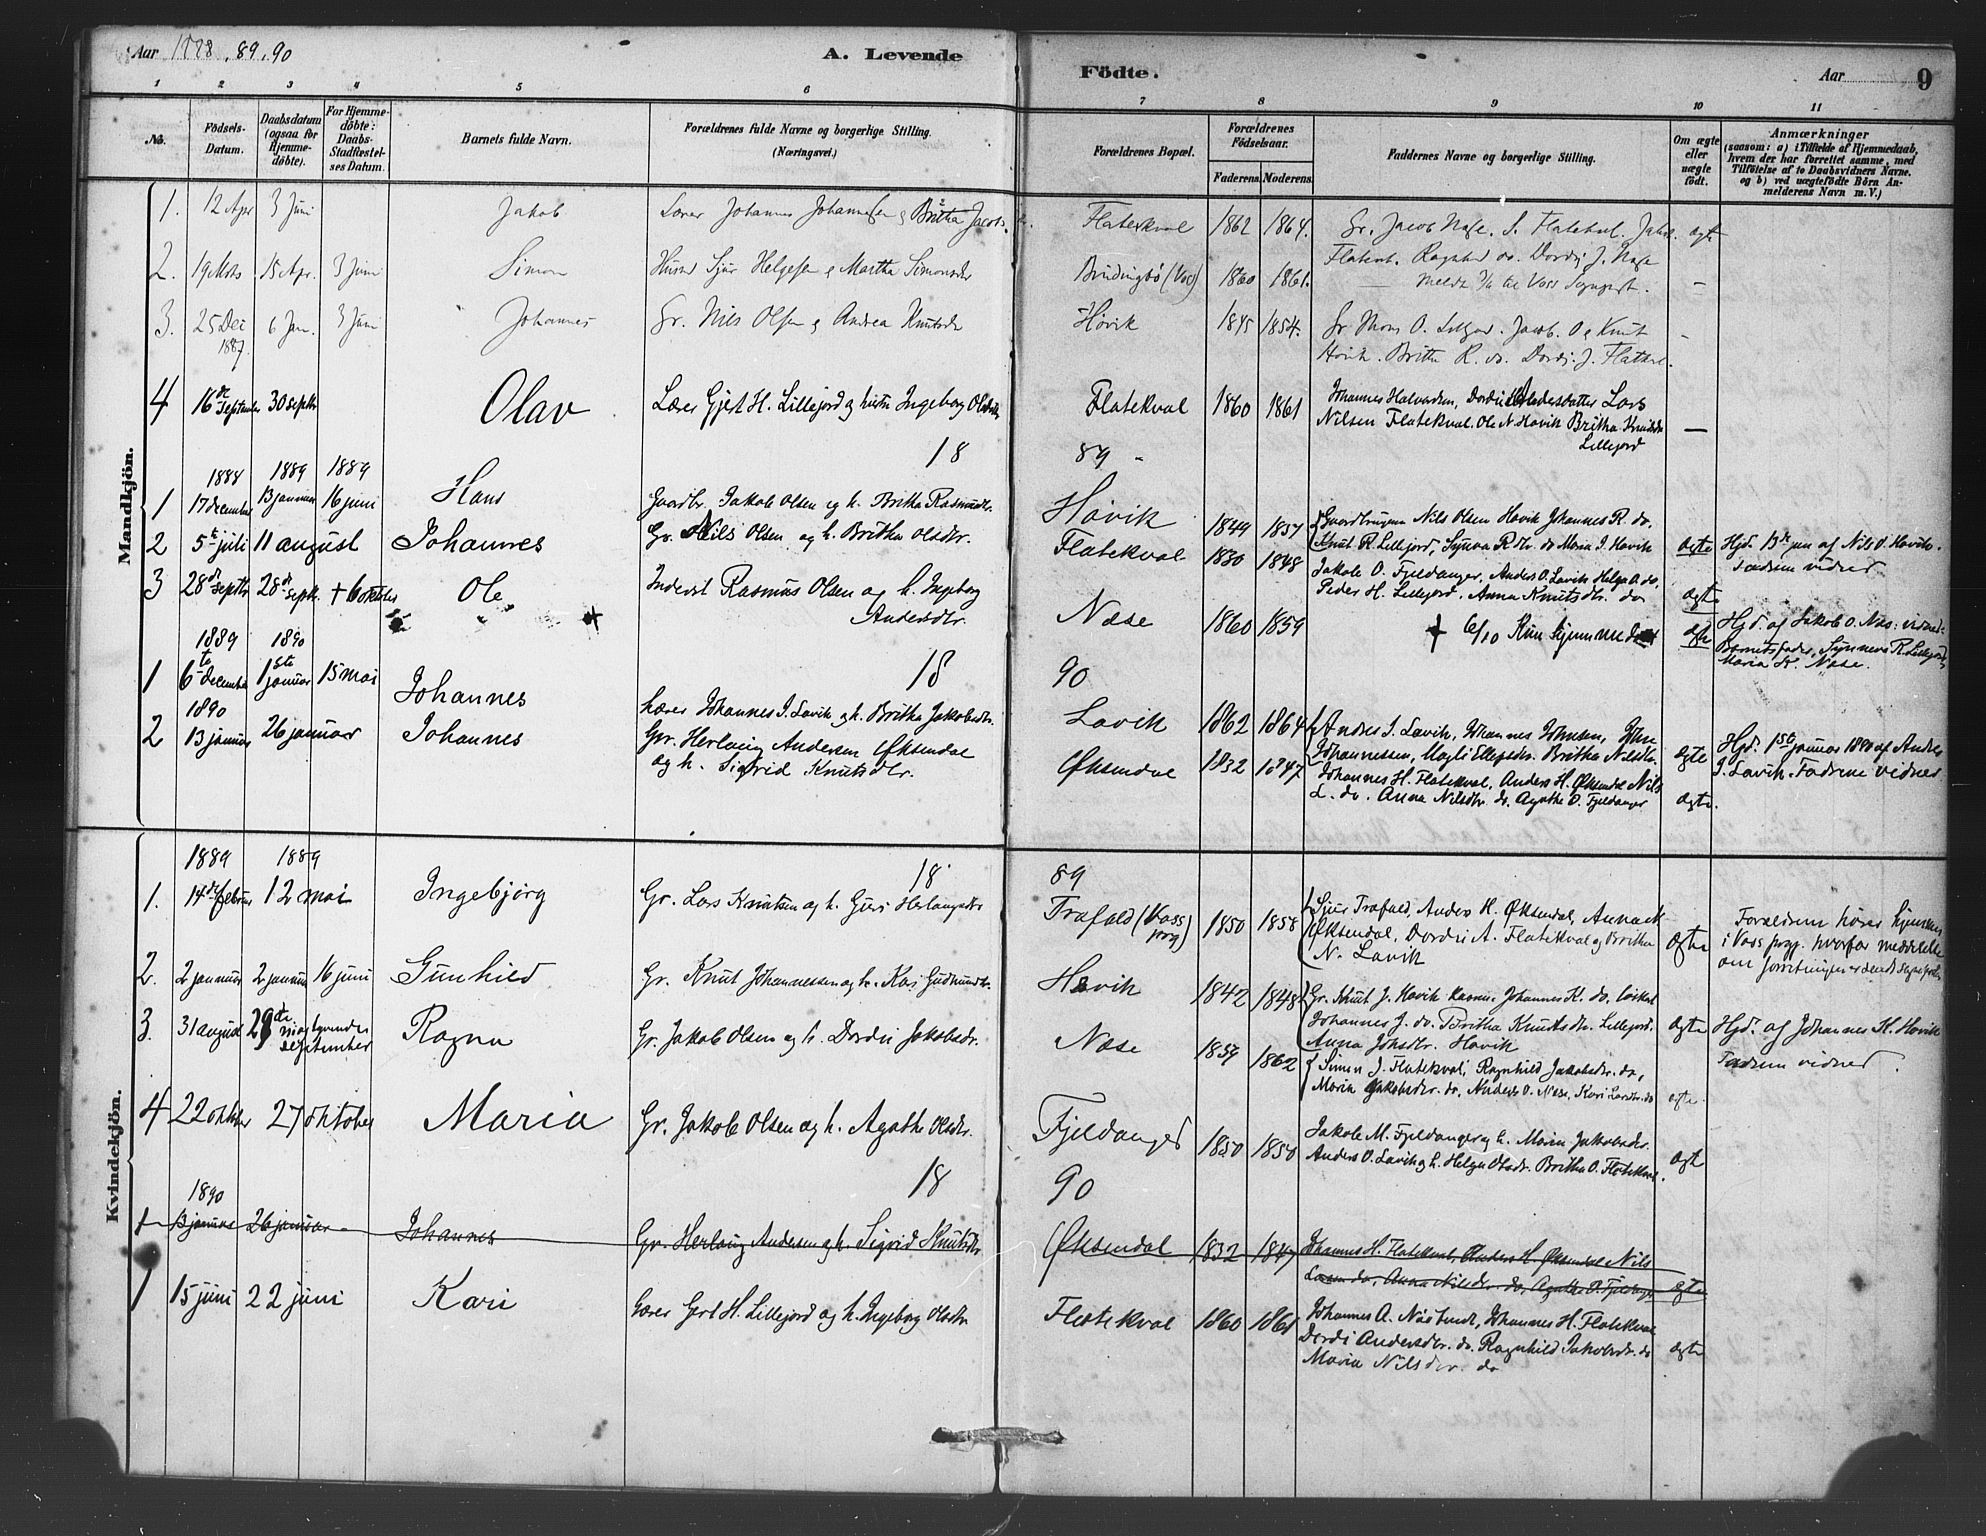 Aar 1888. 89. 90
A. Levende
Födte.
Aar
9
1 2 3 4 5 6 7 8 9 10 11
No.
Födsels-
Datum.
Daabsdatum
(ogsaa for
Hjemme-
döbte).
For Hjemme-
döbte:
Daabs-
Stadfæstel-
ses Datum.
Barnets fulde Navn.
Forældrenes fulde Navne og borgerlige Stilling.
(Næringsvei.)
Forældrenes Bopæl.
Forældrenes
Födselsaar.
Faderens. Moderens.
Faddernes Navne og borgerlige Stilling.
Om ægte
eller
uægte
födt.
Anmærkninger
(saasom: a) i Tilfælde af Hjemmedaab,
hvem der har forrettet samme, med
Tilföielse af to Daabsvidners Navne,
og b) ved uægtefödte Börn An-
melderens Navn m. V.)
Mandkjön.
1. 12 Apr 3 Juni Jakob Lærer Johannes Johannessen & Britha Jacobs. Flatekval 1862 1864.
2. 19 Mrts 15 Apr. 3 Juni Simon Husmd Sjur Helgesen & Martha Simonsdr (Voss) 1860 1861. –
3. 25 Dec 6 Jan. 3 Juni Johannes Gr. Nils Olsen & Andrea Knutsdr Hovik 1845 1854. –
1887.
4 16de September 30 septbr Olav Lærer Gjert H. Lillejord og hustru Ingeborg Olsdtr Flatekval 1860 1861 Johannes Halvorsen, Dordei Andersdatter Lars
Nilsen Flatekval. Ole N. Hovik Britha Knutsdr –
Lillejord
18 89 –
1888 1889 1889
1 17 december 13 januar 16 juni Hans Gaardbr. Jakob Olsen og h. Britha Rasmusdtr. Hovik 1849 1857 Gaardbrugerne Nils Olsen Hovik Johannes R. do.
Knut R. Lillejord, Synva R.dtr. do Maria I. Hovik ægte Hjd. 13de jan af Nils O. Hovik.
Fadrene vidner
2 5te juli 11 august Johannes Gr. Nils Olsen og h. Britha Olsdtr. Flatekval 1830 1848 Jakob O. Fjeldanger, Anders O. Lavik Helga O. do,
Peder H. Lillejord, Anna Knutsdtr. do ægte
3 28de septbr 28de septbr. + 6 oktober Ole Inderst Rasmus Olsen og h. Ingeborg
Andersdtr. Næse 1860 1859 + 6/10 Kun hjemmedøbt ægte Hjd. af Jakob O. Næse: vidner:
Barnets fader, Synneva R. Lillejord,
Maria K. Næse.
18 90
1889 1890
1 6te december 1ste januar 15 mai Johannes Lærer Johannes I. Lavik og h. Britha Jakobsdtr. Lavik 1862 1864 Anders I. Lavik, Johannes Johnsen, John
Johannessen, Magli Ellefsdr. Britha Nilsdtr. ægte Hjd. 1ste januar 1890 af Anders
I. Lavik. Fadrene vidner
1890
2 13 januar 26 januar Johannes Gr. Herlaug Andersen Øksendal
og h. Sigrid Knutsdtr. Øksendal 1832 1847 Johannes H. Flatekval, Anders H. Øksendal Nils
L. do. Anna Nilsdtr. do, Agathe O. Fjeldanger ægte.
Kvindekjön.
1889 1889 18 89
1. 14de februar 12 mai Ingebjørg Gr. Lars Knutsen og h. Guri Herlaugsdtr Trafald (Voss
prg) 1850 1858 Sjur Trafald, Anders H. Øksendal, Anna K
Øksendal, Dordei A. Flatekval og Britha
N. Lavik ægte Forældrene hører hjemme
i Voss prgj. hvorfor meddelelse
om forretningen er sendt sogneprsten
2. 2 januar 2 januar 16 juni Gunhild Gr. Knut Johannessen og h. Kari Gudmundsdtr. Hovik 1842 1848 Gr. Knut J. Hovik Rasm. Johannes K. do,
Johannes J. do. Britha Knutsdtr. Lillejord.
Anna Johsdtr. Hovik ægte Hjd. af Johannes K. Hovik
Fadrene vidner.
3. 31 august 29de niogtyvende
september Ragna Gr. Jakob Olsen og h. Dordei Jakobsdr. Næse 1859 1862 Simon J. Flatekval, Ragnhild Jakobsdtr. do,
Maria Jakobsdtr. do, Anders O. Næse, Kari Larsdtr. do ægte.
4 22 oktber 27 oktober Maria Gr. Jakob Olsen og h. Agathe Olsdtr. Fjeldanger 1850 1850 Jakob M. Fjeldanger og h. Maria Jakobsdr.
Anders O. Lavik og h. Helga Olsdr. Britha O. Flatekval. ægte
18 90
1890
1 13 januar 26 januar Johannes Gr. Herlaug Andersen og h. Sigrid Knutsdtr Øksendal 1832 1847 Johannes H. Flatekval, Anders H. Øksendal Nils
Larsen do, Anna Nilsdr. do, Agathe O. Fjeldanger ægte
1 15 juni 22 juni Kari Lærer Gert H. Lillejord og h. Ingeborg Olsdtr Flatekval 1860 1861 Johannes A. Næstvedt, Johannes H. Flatekval
Dordei Andersdtr. do. Ragnhild Jakobsdr. do ægte
Maria Nilsdtr. do